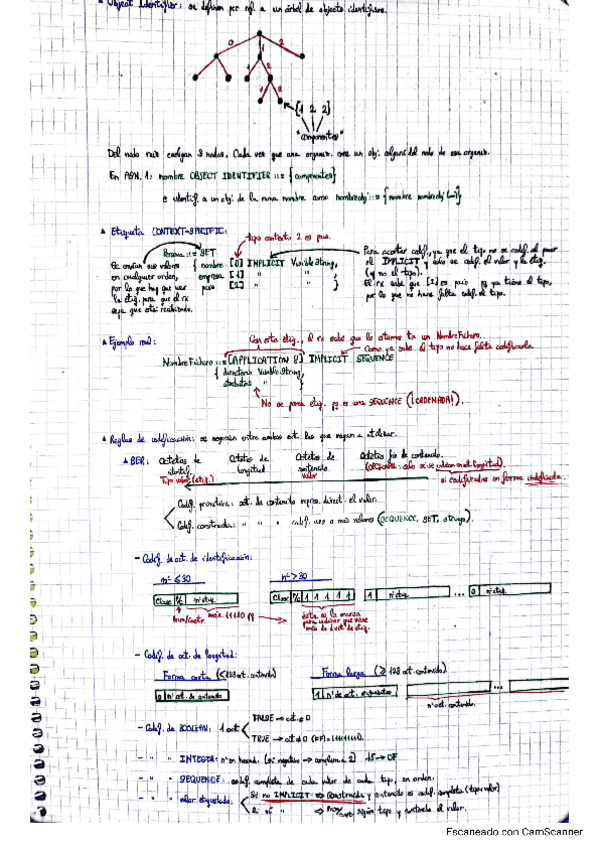 ▲ Object Identifier: se definen por ref. a un árbol de objects identifiers.
0 1 2
1 2
1 2
{1 2 2}
"componentes"
Del nodo raiz cuelgan 3 nodos. Cada vez que una organiz. crea un obj. del nodo de esa organiz.
En ASN.1: nombre OBJECT IDENTIFIER ::= {componentes}
e identif. a un obj. de la misma nombre como nombreobj ::= {nombre nombreobj (...)}
▲ Etiqueta CONTEXT-SPECIFIC:
tipo contexto 2 es pais.
Persona ::= SET
{ nombre [0] IMPLICIT VisibleString,
empresa [1] " " ,
pais [2] " " }
Se envían sus valores
en cualquier orden,
por lo que hay que usar
la etiq. para que el rx
sepa que está recibiendo.
Para acortar codif., ya que el tipo no se codif. al poner
el IMPLICIT y solo se codif. el valor y la etiq.
(y no el tipo).
El rx sabe que [2] es pais y ya tiene el tipo,
por lo que no hace falta codif. el tipo.
▲ Ejemplo real:
Con esta etiq., el rx sabe que le estamos tx un NombreFichero.
Como ya sabe el tipo no hace falta codificarlo
NombreFichero ::= [APPLICATION 0] IMPLICIT SEQUENCE
{ directorio VisibleString,
" }
No se pone etiq. pq es una SEQUENCE (¡ORDENADA!).
▲ Reglas de codificación: se negocian entre ambos ext. las que vayan a utilizar.
▲ BER: Octetos de identif. Octetos de longitud Octetos de contenido Octetos fin de contenido.
Tipo valor (etiq.) valor (OPCIONAL: sólo si se utilizan oct. longitud).
si codificados en forma indefinida.
Codif. primitiva: oct. de contenido repres. direct. el valor.
Codif. construida: " " " codif. uno o más valores (SEQUENCE, SET, strings).
- Codif. de oct. de identificación:
nº ≤ 30 nº > 30
Clase P/C nº etiq. Clase P/C 1 1 1 1 1 1 nº etiq. ... 0 nº etiq.
máx. 11110
ésta es la marca
para indicar que viene
más de 1 oct. de etiq.
- Codif. de oct. de longitud:
Forma corta (<128 oct. contenido) Forma larga (≥ 128 oct. contenido)
0 nº oct. de contenido 1 nº de oct. ...
nº oct. contenido.
- Codif. de BOOLEAN: 1 oct
FALSE → oct = 0
TRUE → oct ≠ 0 (FF) = (11111111)
- " " INTEGER: nº en binario (si negativo → complem. a 2) 15 → 0F
- " " SEQUENCE: codif. completa de cada valor de cada tipo, en orden.
- " " valor etiquetado.
Si no IMPLICIT ⇒ Construida y contenido es codif. completa (tipo valor)
Si sí " ⇒ según tipo y contenido el valor.
Escaneado con CamScanner